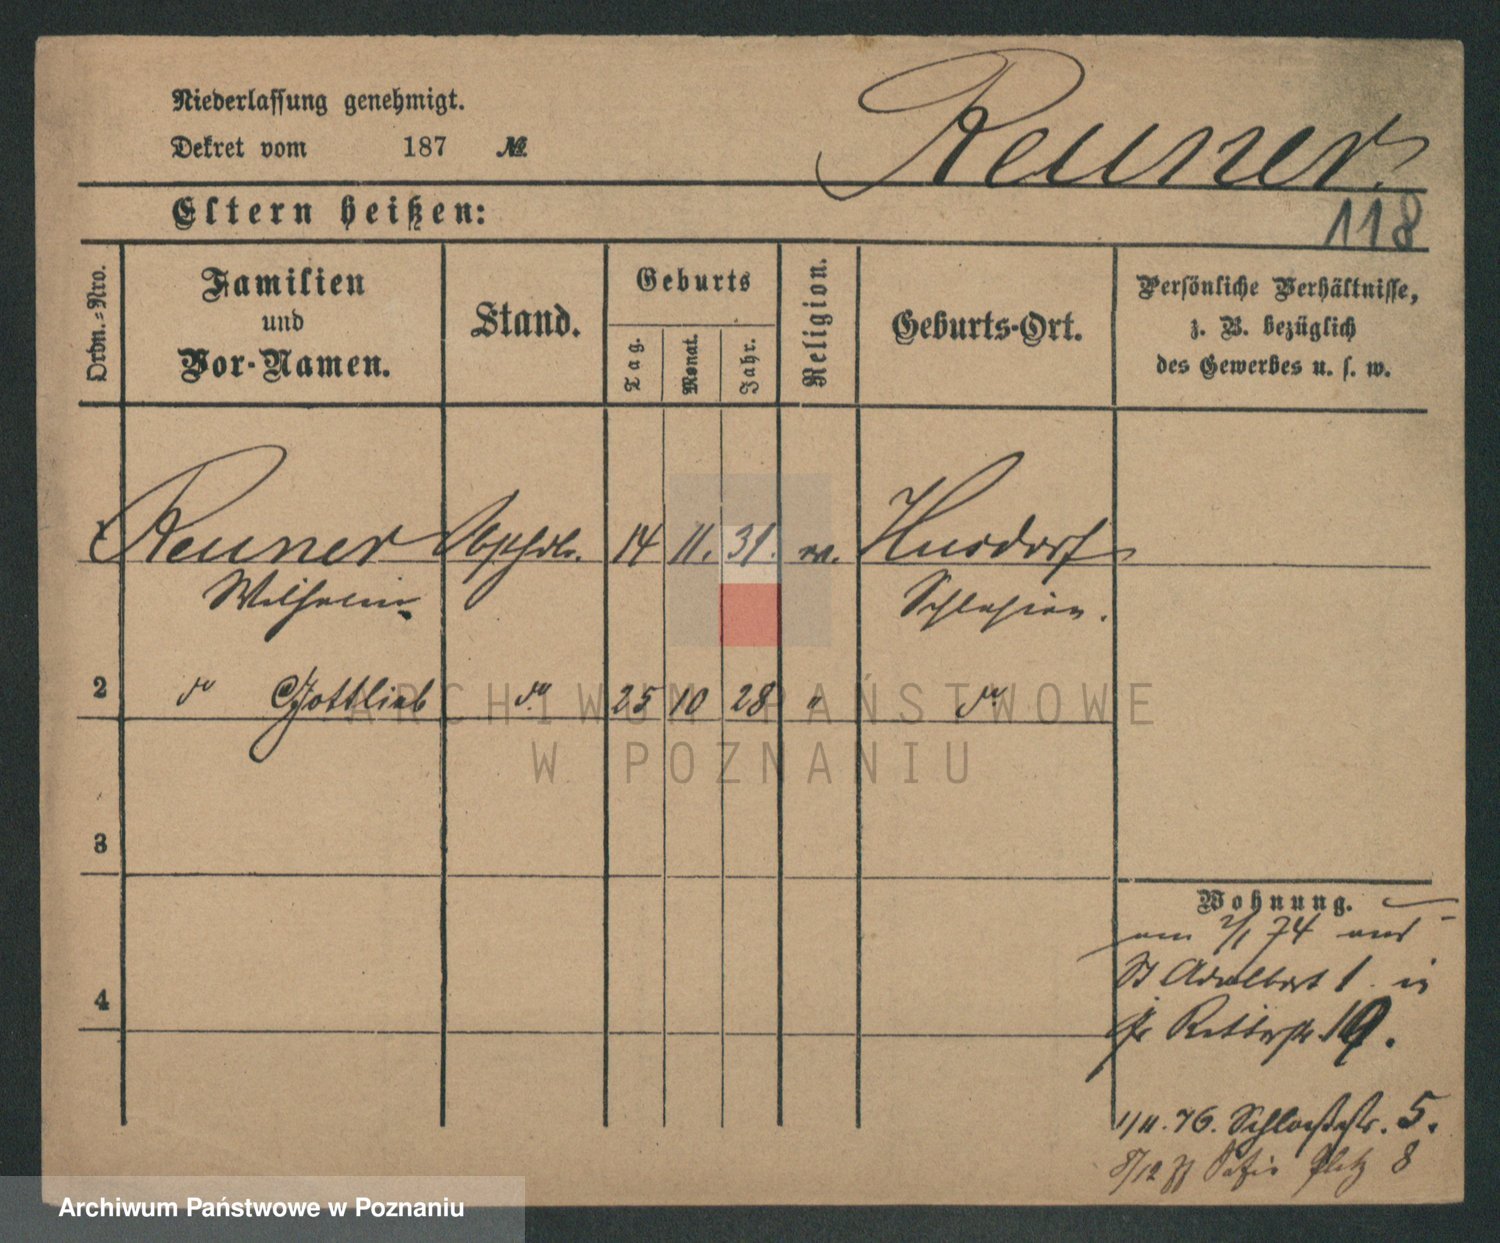 Niederlassung genehmigt.
Dekret vom 187 №
Reuner.
118
Eltern heißen:
Ordn.=Nro.
Familien
und
Vor-Namen.
Stand.
Geburts
Tag.
Monat.
Jahr.
Religion.
Geburts-Ort.
Persönliche Verhältnisse,
z. B. bezüglich
des Gewerbes u. s. w.
1 Reuner 14 11. 31. Husdorf
Wilhelm Schlesien.
2 do Gottlieb do 25 10 28 " do
ARCHIWUM PAŃSTWOWE
W POZNANIU
3
Wohnung.
am 2/1 74 aus
St Adalbert 1. in
gr Ritterstr. 19.
4
1/11. 76. Schlossstr. 5.
8/12 77 8
Archiwum Państwowe w Poznaniu